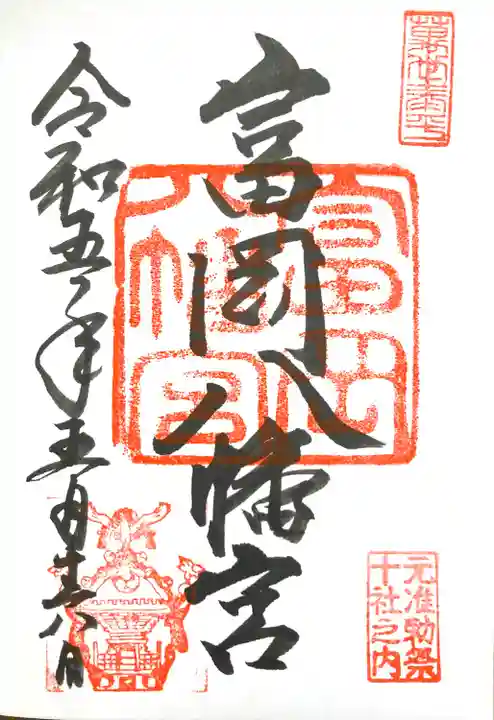 萬世泰平
富岡八幡宮
富岡八幡宮
元准勅祭
十社之内
令和五年五月八日